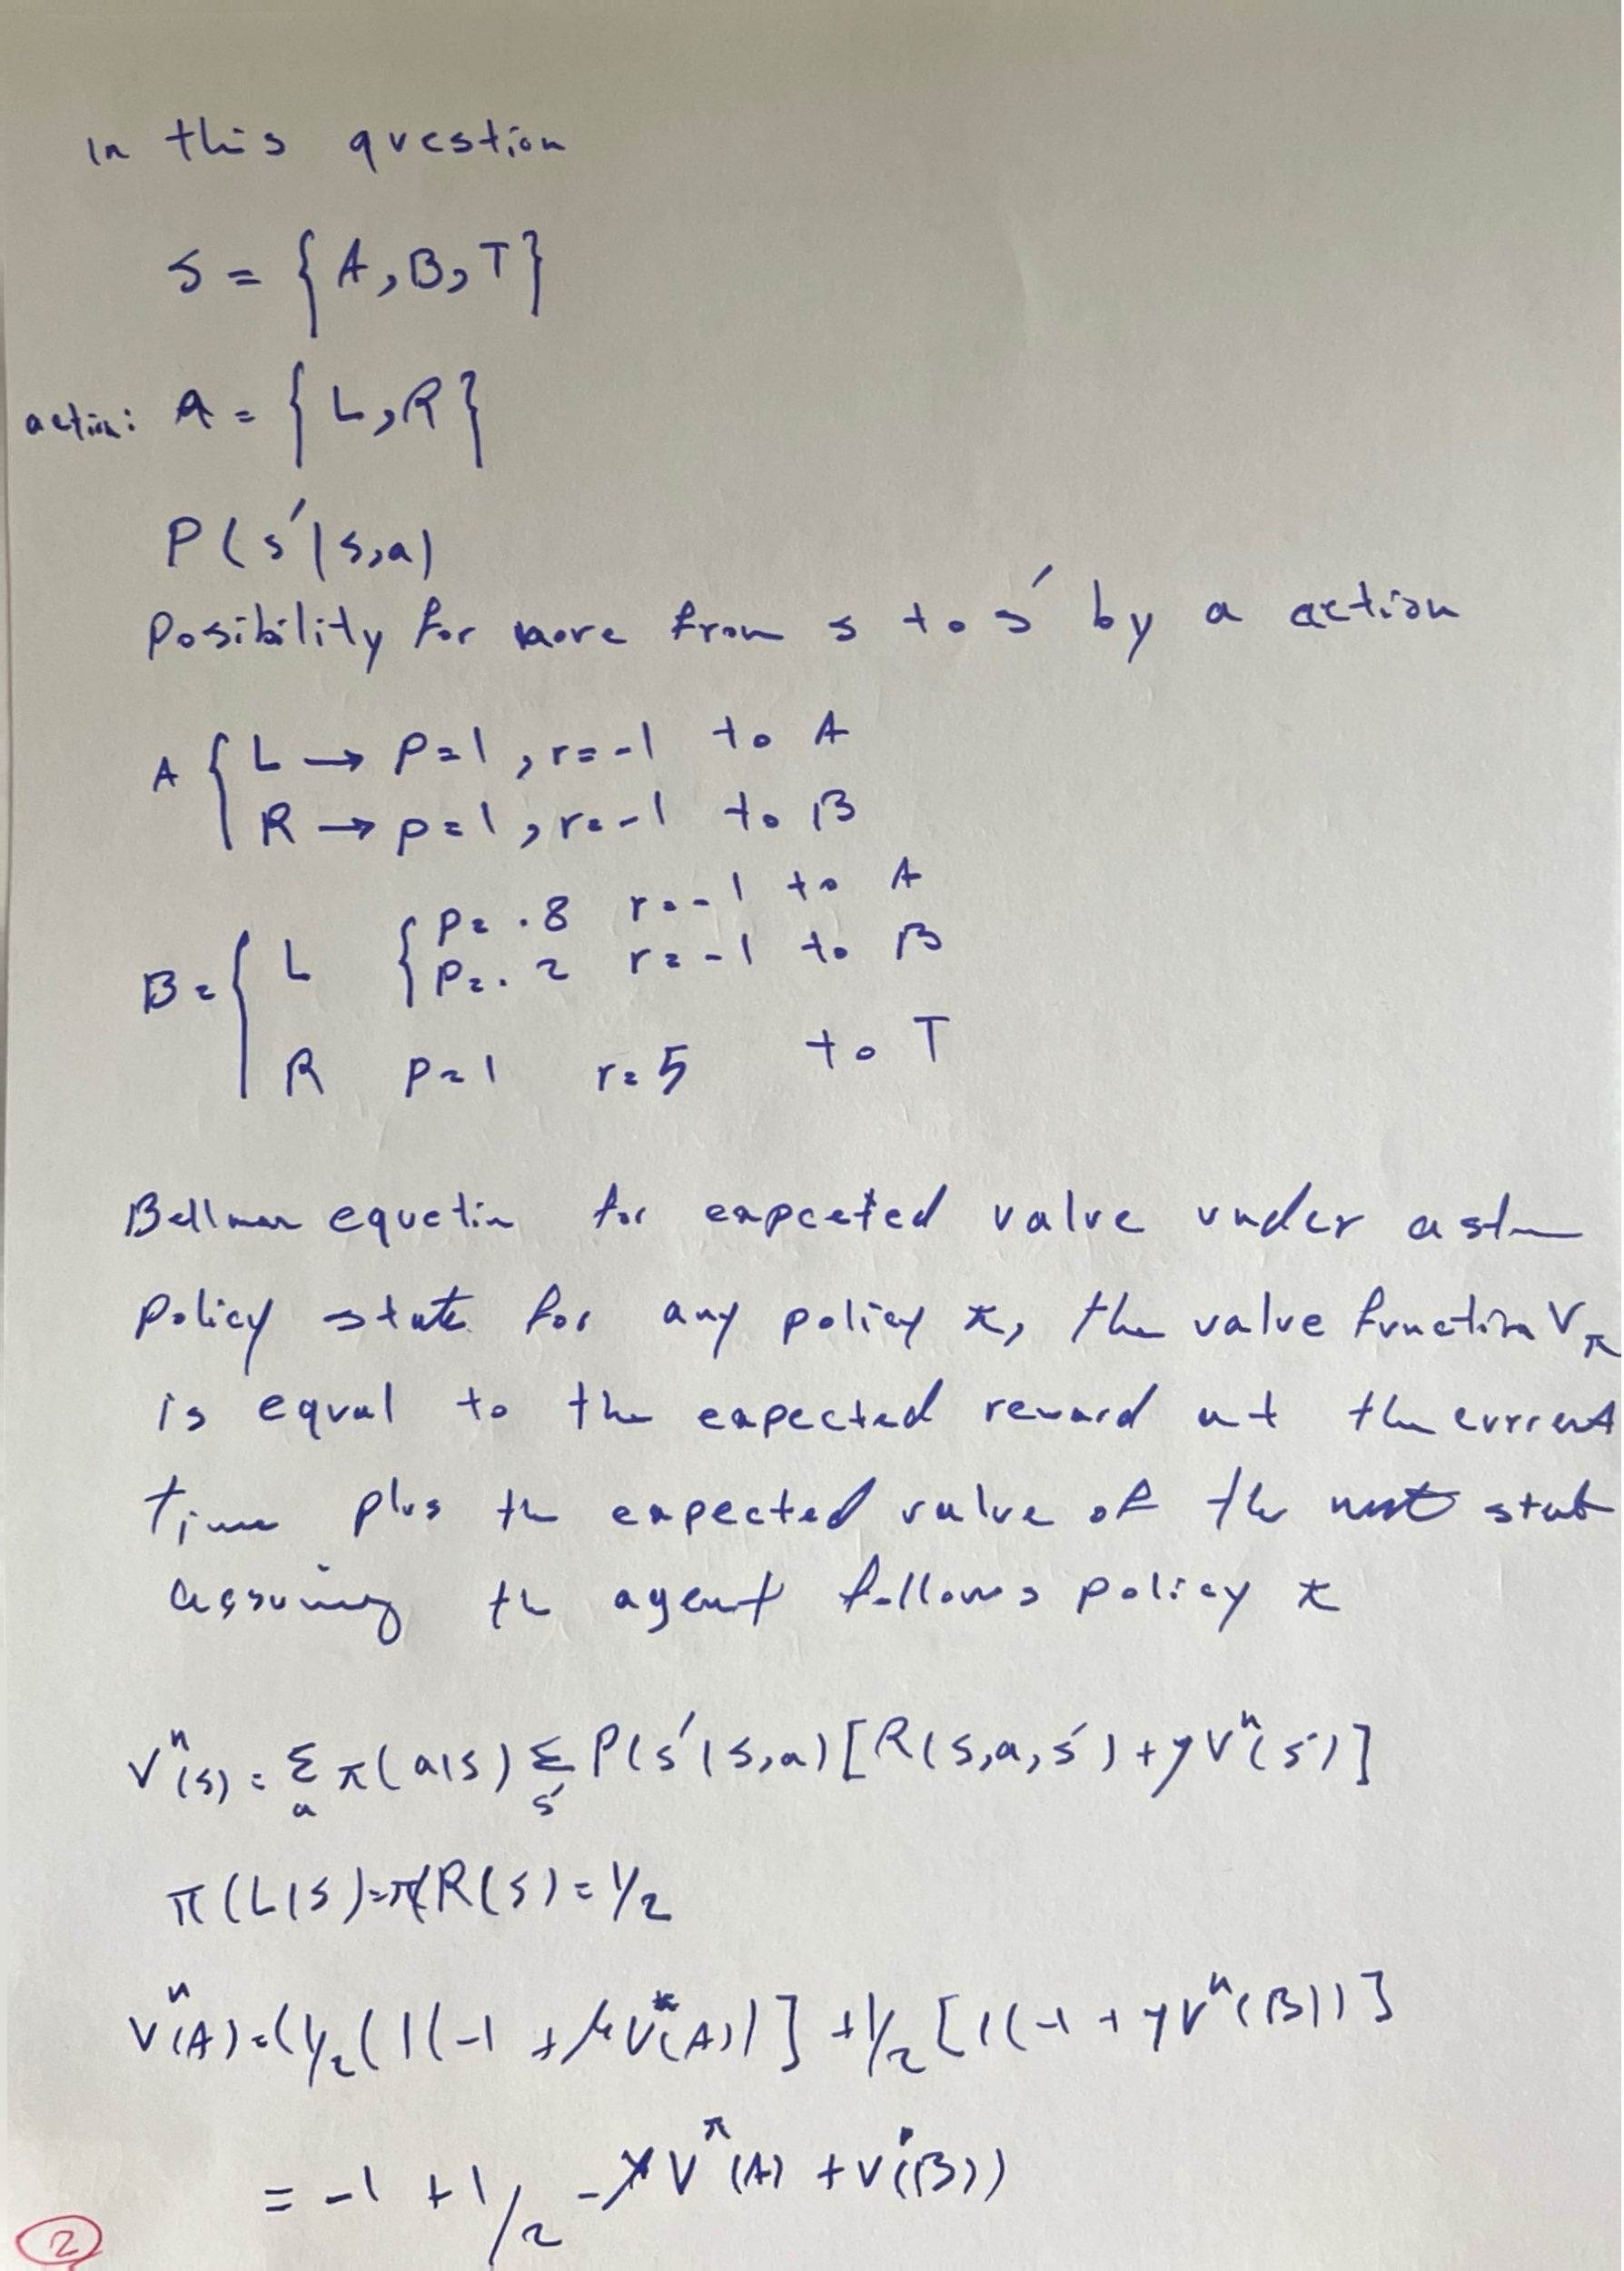 In this question
S = { A, B, T }
action: A = { L, R }
P(s'|s,a)
Posibility for move from s to s' by a action
A { L → P=1, r=-1 to A
R → p=1, r=-1 to B
B = { L { P=.8 r=-1 to A
P=.2 r=-1 to B
R p=1 r=5 to T
Bellman equetin for expected value under
policy state for any policy π, the value function Vπ
is equal to the expected reward at the current
Time plus the expected value of the next state
assuming the agent follows policy π
V^π(s) = Σ_a π(a|s) Σ_s' P(s'|s,a) [R(s,a,s') + γV^π(s')]
π(L|s) = π(R|s) = 1/2
V^π(A) = (1/2 (1(-1 + γV^π(A))] + 1/2 [1(-1 + γV^π(B))]
= -1 + 1/2 - γV^π(A) + V(B))
2